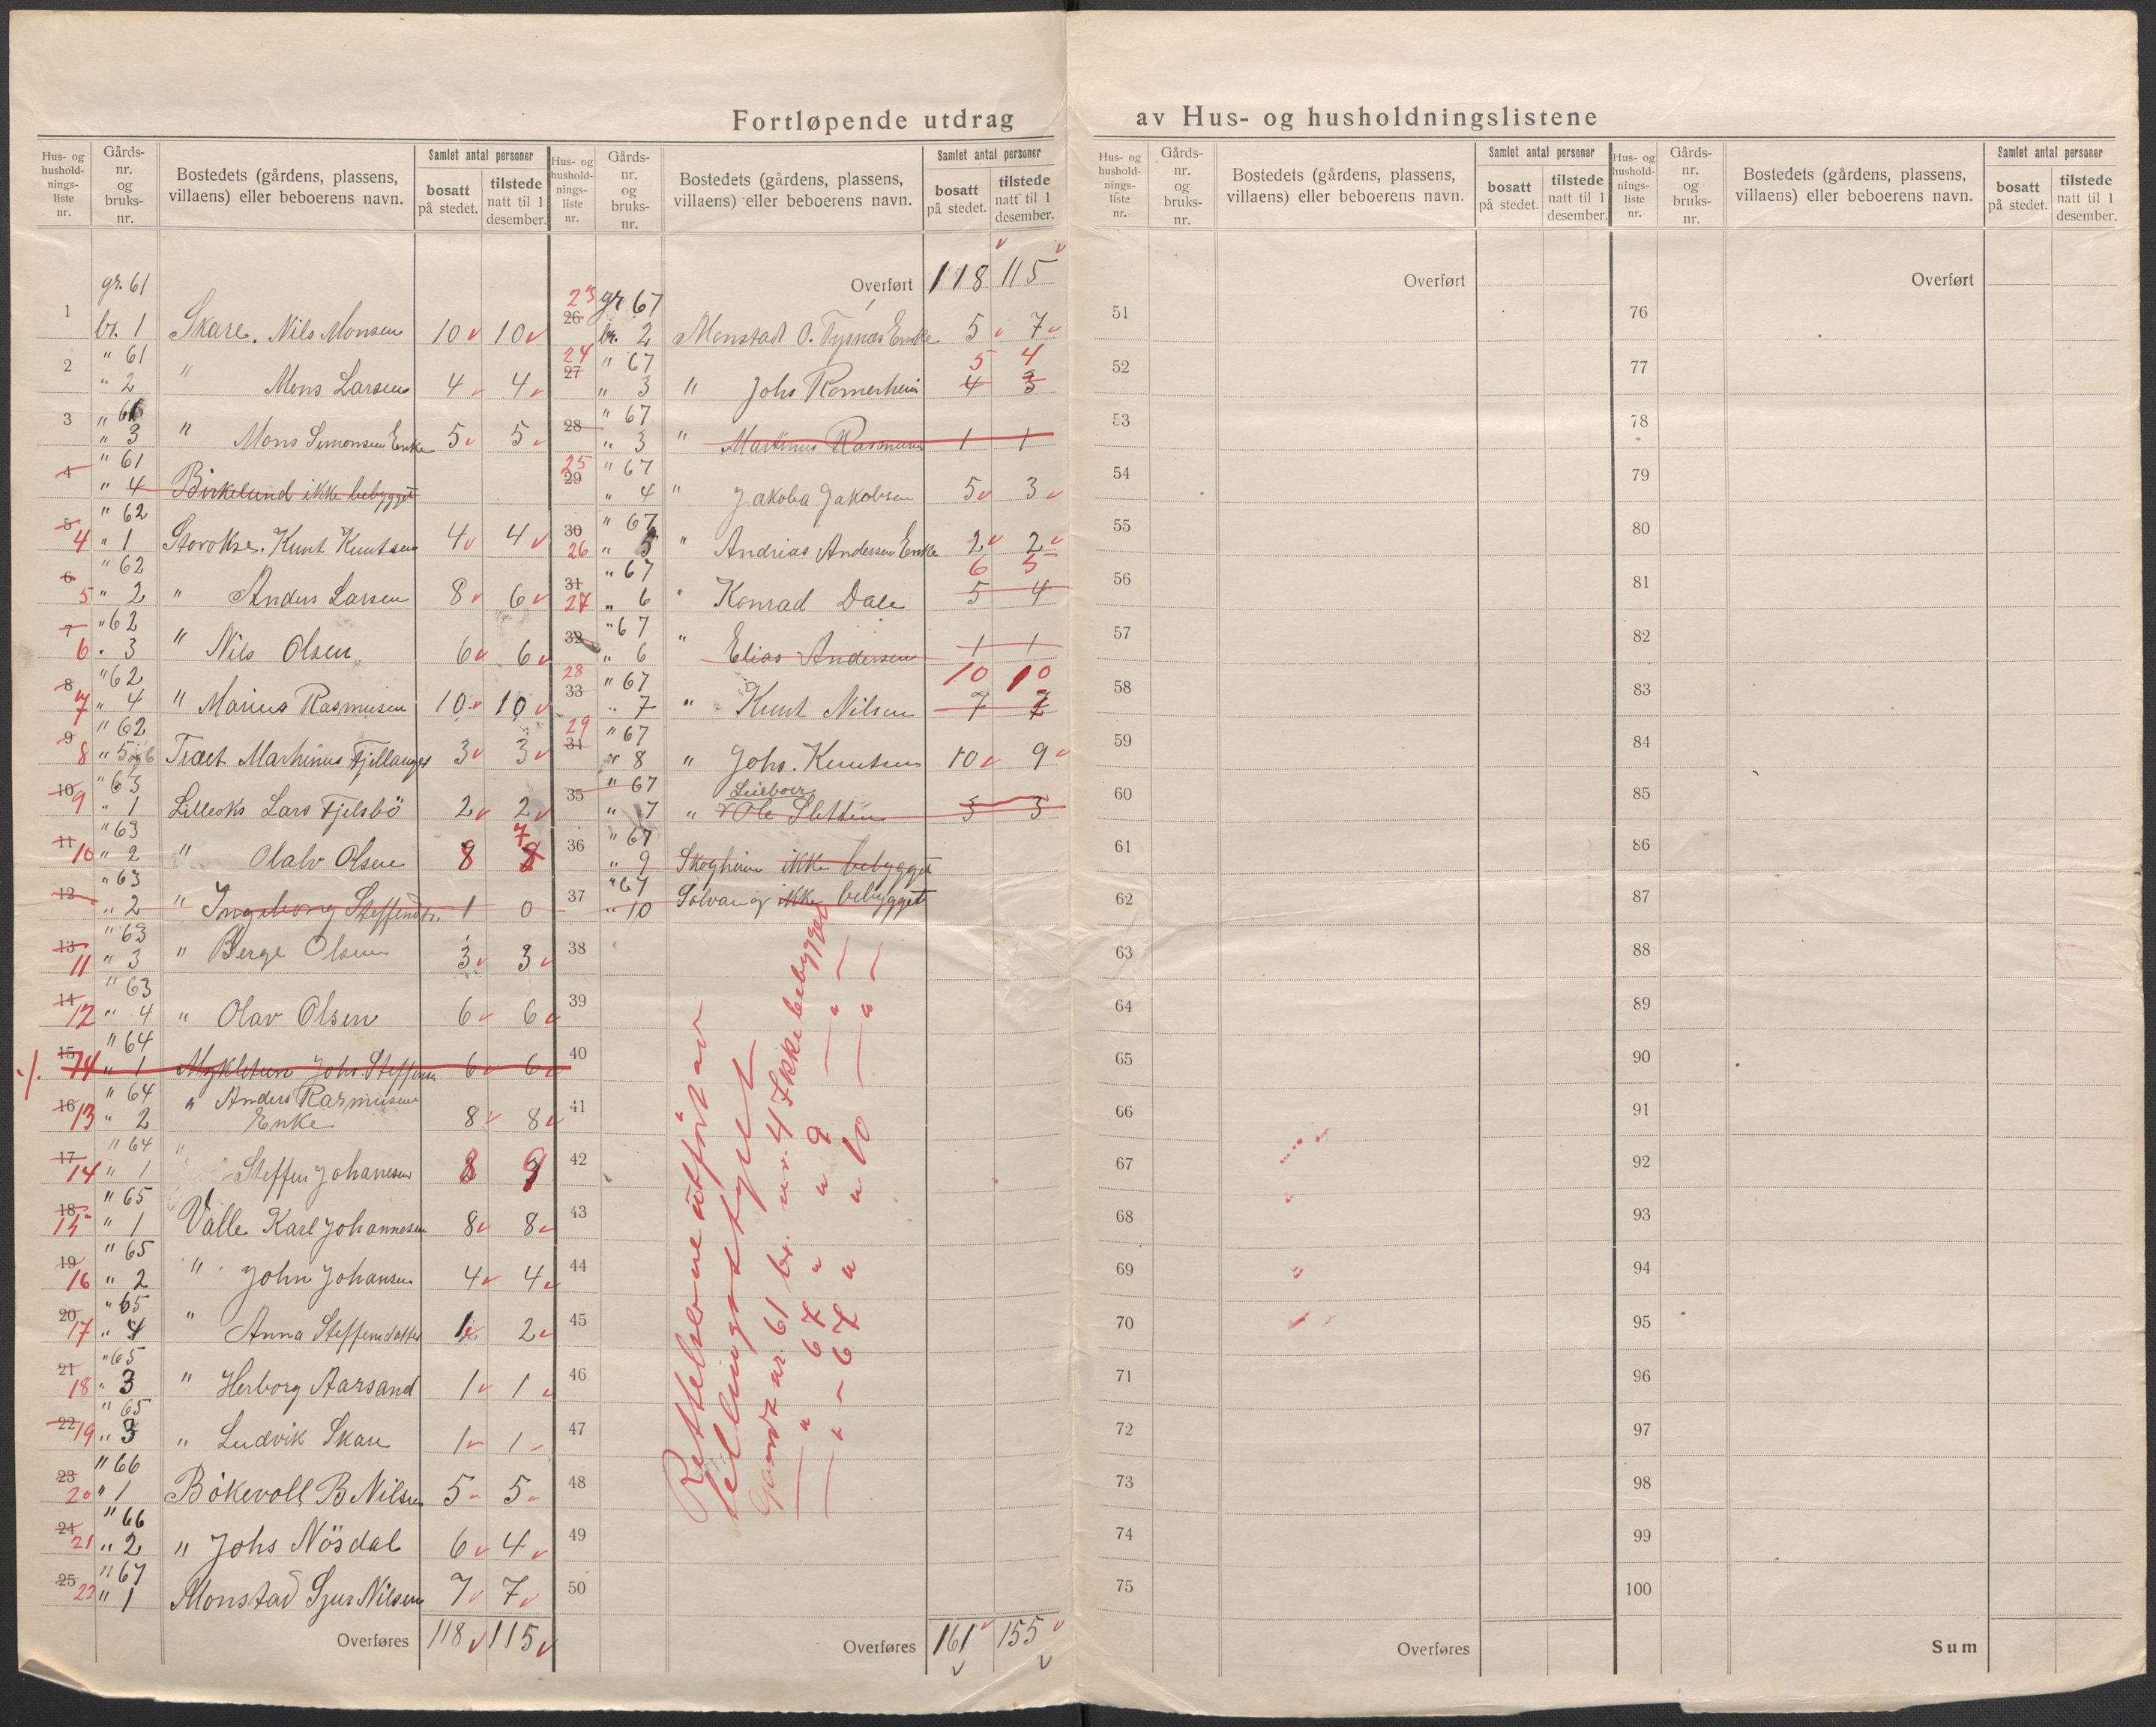 Fortløpende utdrag av Hus- og husholdningslistene
Hus- og hushold-nings-liste nr. | Gårds-nr. og bruks-nr. | Bostedets (gårdens, plassens, villaens) eller beboerens navn. | Samlet antal personer | bosatt på stedet. | tilstede natt til 1 desember.
1 gr. 61 br. 1 Skare. Nils Monsen 10 10
2 " 61 " 2 " Mons Larsen 4 4
3 " 61 " 3 " Mons Simonsen Enke 5 5
4 " 61 " 4 Birkelund ikke bebygget
5 4 " 62 " 1 Storokse. Knut Knutsen 4 4
6 5 " 62 " 2 " Anders Larsen 8 6
7 6 " 62 " 3 " Nils Olsen 6 6
8 7 " 62 " 4 " Marius Rasmusen 10 10
9 8 " 62 " 5 og 6 Træet Marhinus Fjellanger 3 3
10 9 " 63 " 1 Lilleoks Lars Fjelsbö 2 2
11 10 " 63 " 2 " Olalv Olsen 8 8 7
12 " 63 " 2 " Ingeborg Steffensdtr. 1 0
13 11 " 63 " 3 " Berge Olsen 3 3
14 12 " 63 " 4 " Olav Olsen 6 6
15 14 " 64 " 1 Mykletun Johs. Steffensen 6 6
16 13 " 64 " 2 " Anders Rasmusen Enke 8 8
17 14 " 64 " 1 " Steffen Johannesen 8 9
18 15 " 65 " 1 Valle Karl Johannesen 8 8
19 16 " 65 " 2 " John Johansen 4 4
20 17 " 65 " 4 " Anna Steffensdatter 1 2
21 18 " 65 " 3 " Herborg Aarsand 1 1
22 19 " 65 " 3 " Ludvik Skare 1 1
23 20 " 66 " 1 Bökevoll B Nilsen 5 5
24 21 " 66 " 2 " Johs Nösdal 6 4
25 22 " 67 " 1 Monstad Sjur Nilsen 7 7
Overføres 118 115
Hus- og hushold-nings-liste nr. | Gårds-nr. og bruks-nr. | Bostedets (gårdens, plassens, villaens) eller beboerens navn. | Samlet antal personer | bosatt på stedet. | tilstede natt til 1 desember.
Overført 118 115
26 23 gr 67 br. 2 Monstad O. Tysnæs Enke 5 7
27 24 " 67 " 3 " Johs Romerheim 4 3 5 4
28 " 67 " 3 " Martinus Rasmusen 1 1
29 25 " 67 " 4 " Jakoba Jakobsen 5 3
30 26 " 67 " 5 " Andrias Andersen Enke 2 2
31 27 " 67 " 6 " Konrad Dale 5 4 6 5
32 " 67 " 6 " Elias Andersen 1 1
33 28 " 67 " 7 " Knut Nilsen 7 7 10 10
34 29 " 67 " 8 " Johs. Knutsen 10 9
35 " 67 " 7 " Leieboer Ole Sletten 3 3
36 " 67 " 9 Skogheim ikke bebygget
37 " 67 " 10 Solvang ikke bebygget
38
39
40
41
42
43
44
45
46
47
48
49
50
Rettelserne utført av
tellingsstyret
Gaards nr. 61 br. nr. 4 Ikke bebygget
— " — 67 " " 9 — " —
— " — 67 " " 10 — " —
Overføres 161 155
Hus- og hushold-nings-liste nr. | Gårds-nr. og bruks-nr. | Bostedets (gårdens, plassens, villaens) eller beboerens navn. | Samlet antal personer | bosatt på stedet. | tilstede natt til 1 desember.
Overført
51
52
53
54
55
56
57
58
59
60
61
62
63
64
65
66
67
68
69
70
71
72
73
74
75
Overføres
Hus- og hushold-nings-liste nr. | Gårds-nr. og bruks-nr. | Bostedets (gårdens, plassens, villaens) eller beboerens navn. | Samlet antal personer | bosatt på stedet. | tilstede natt til 1 desember.
Overført
76
77
78
79
80
81
82
83
84
85
86
87
88
89
90
91
92
93
94
95
96
97
98
99
100
Sum